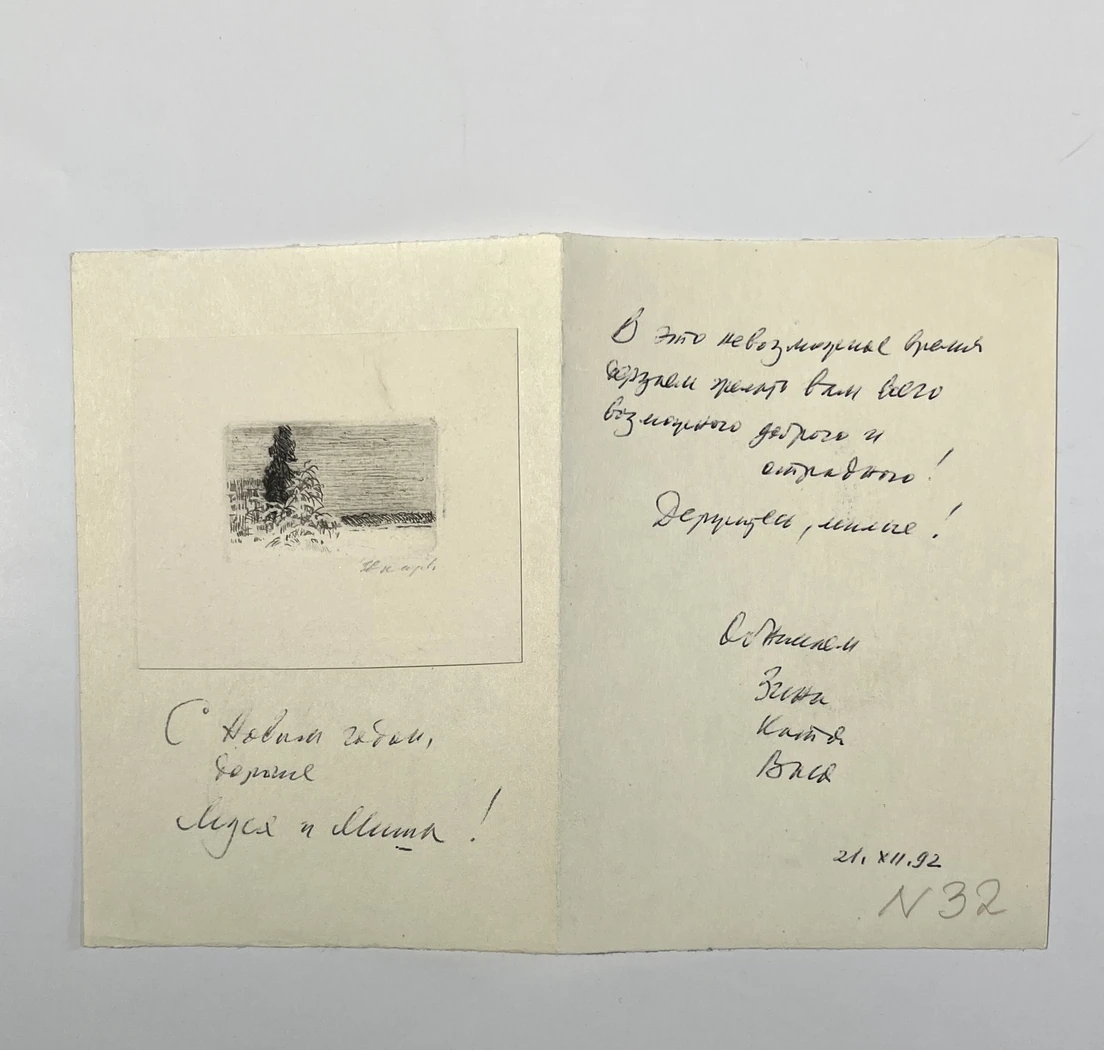 С Новым годом,
дорогие
Муся и Миша!
В это невозможное время
дерзаем желать вам всего
возможного доброго и
отрадного!
Держитесь, милые!
Обнимаем
Зина
Катя
Вася
21. XII. 92
N 32